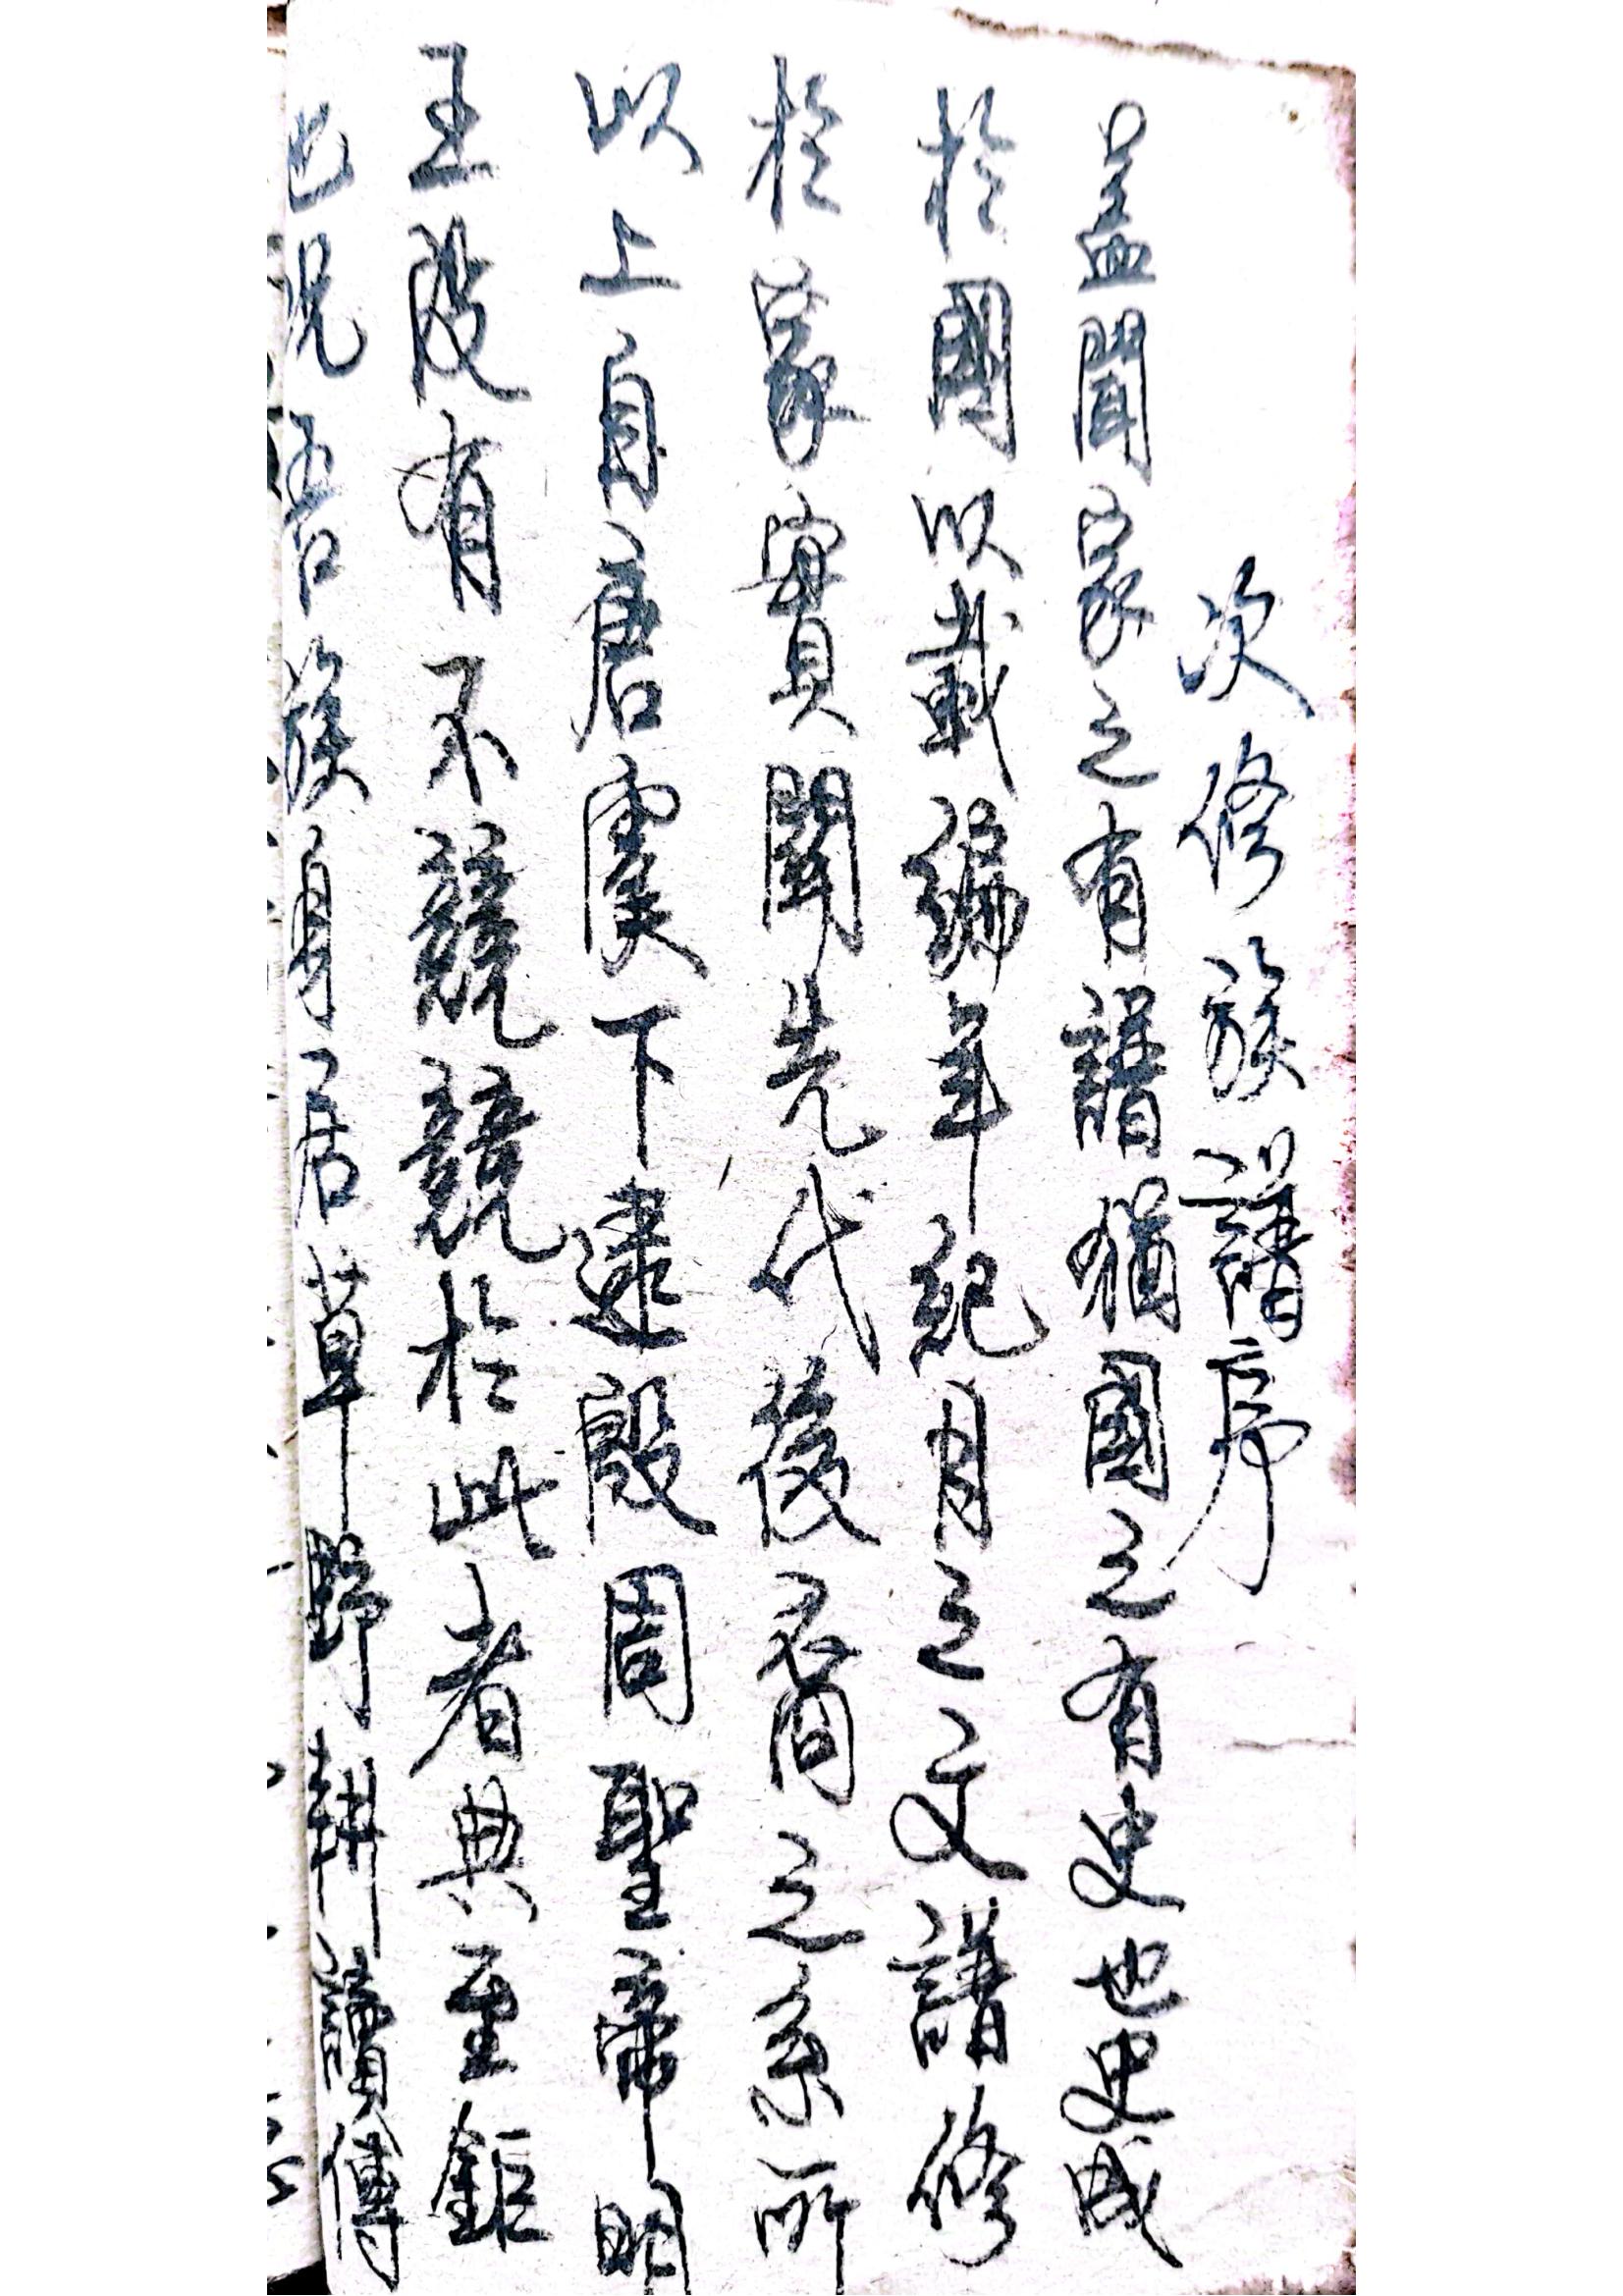 次修族譜序
蓋聞家之有譜猶國之有史也史成
於國以載編年紀月之文譜修
於家實關先代後裔之系所
以上自唐虞下逮殷周聖帝明
王段有不競競於此者典至鉅
也況吾族身居草野耕讀傳